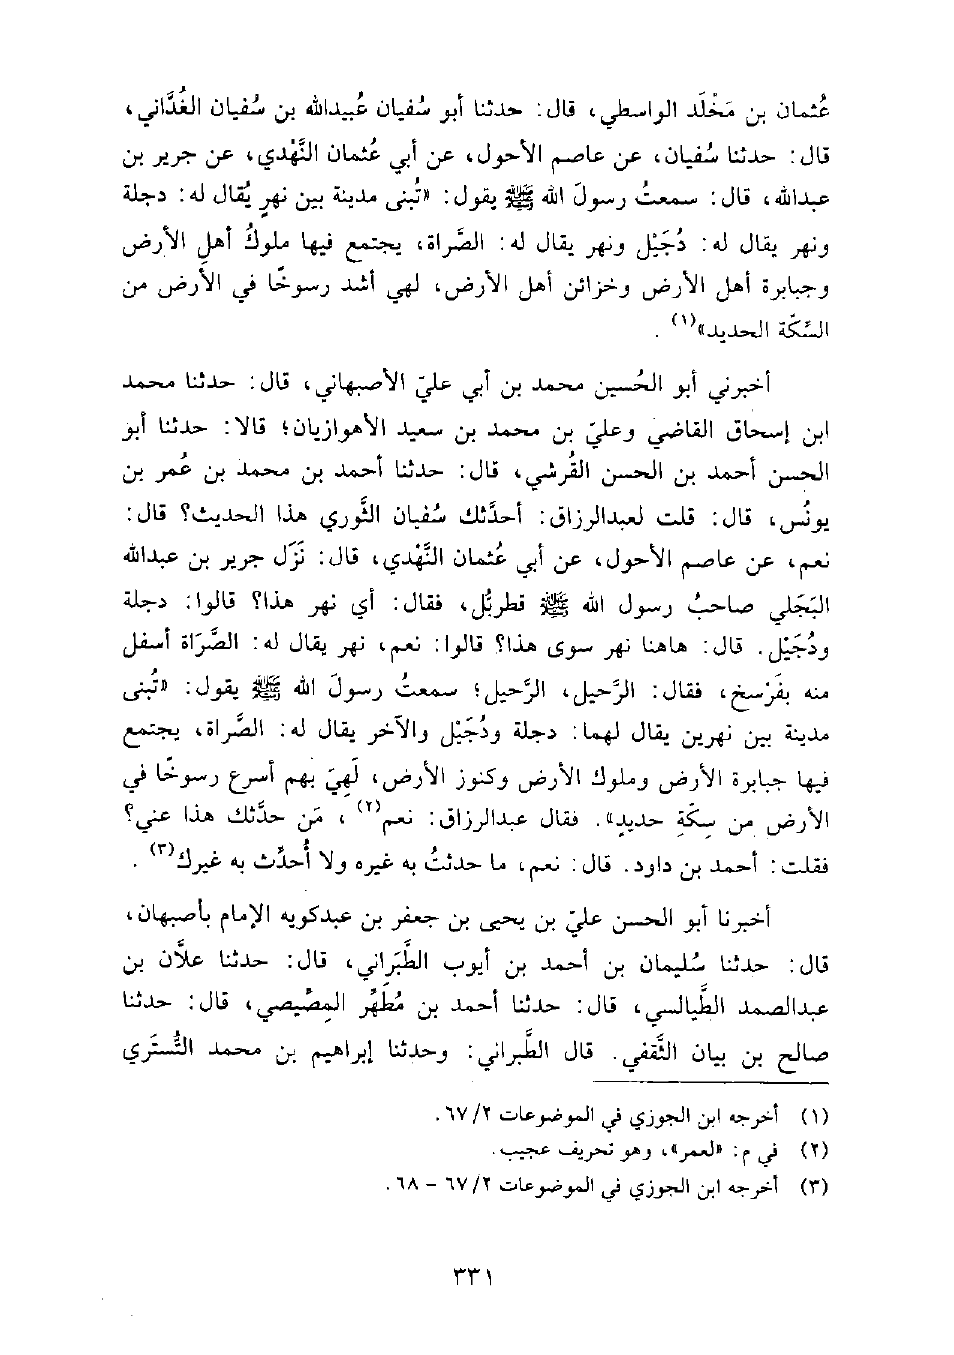 عُثمان بن مَخْلَد الواسطي، قال: حدثنا أبو سُفيان عُبيدالله بن سُفيان الغُدَّاني،
قال: حدثنا سُفيان، عن عاصم الأحول، عن أبي عُثمان النَّهْدي، عن جرير بن
عبدالله، قال: سمعتُ رسولَ الله ﷺ يقول: «تُبنى مدينة بين نهرٍ يُقال له: دجلة
ونهر يقال له: دُجَيْل ونهر يقال له: الصَّراة، يجتمع فيها ملوكُ أهلِ الأرض
وجبابرة أهل الأرض وخزائن أهل الأرض، لهي أشد رسوخًا في الأرض من
السِّكَّة الحديد»(١) .
أخبرني أبو الحُسين محمد بن أبي عليّ الأصبهاني، قال: حدثنا محمد
ابن إسحاق القاضي وعليّ بن محمد بن سعيد الأهوازيان؛ قالا: حدثنا أبو
الحسن أحمد بن الحسن القُرشي، قال: حدثنا أحمد بن محمد بن عُمر بن
يونُس، قال: قلت لعبدالرزاق: أحدَّثك سُفيان الثَّوري هذا الحديث؟ قال:
نعم، عن عاصم الأحول، عن أبي عُثمان النَّهْدي، قال: نَزَل جرير بن عبدالله
البَجَلي صاحبُ رسول الله ﷺ قطربُّل، فقال: أي نهر هذا؟ قالوا: دجلة
ودُجَيْل. قال: هاهنا نهر سوى هذا؟ قالوا: نعم، نهر يقال له: الصَّرَاة أسفل
منه بفَرْسخ، فقال: الرَّحيل، الرَّحيل؛ سمعتُ رسولَ الله ﷺ يقول: «تُبنى
مدينة بين نهرين يقال لهما: دجلة ودُجَيْل والآخر يقال له: الصَّراة، يجتمع
فيها جبابرة الأرض وملوك الأرض وكنوز الأرض، لَهِيَ بهم أسرع رسوخًا في
الأرض من سِكَّةِ حديدٍ». فقال عبدالرزاق: نعم(٢) ، مَن حدَّثك هذا عني؟
فقلت: أحمد بن داود. قال: نعم، ما حدثتُ به غيره ولا أُحدِّث به غيرك(٣) .
أخبرنا أبو الحسن عليّ بن يحيى بن جعفر بن عبدكويه الإمام بأصبهان،
قال: حدثنا سُليمان بن أحمد بن أيوب الطَّبَراني، قال: حدثنا علَّان بن
عبدالصمد الطَّيالسي، قال: حدثنا أحمد بن مُطَهِّر المِصِّيصي، قال: حدثنا
صالح بن بيان الثَّقفي. قال الطَّبراني: وحدثنا إبراهيم بن محمد التُّستَري
(١) أخرجه ابن الجوزي في الموضوعات ٢/ ٦٧.
(٢) في م: «لعمر»، وهو تحريف عجيب.
(٣) أخرجه ابن الجوزي في الموضوعات ٢/ ٦٧ – ٦٨.
٣٣١